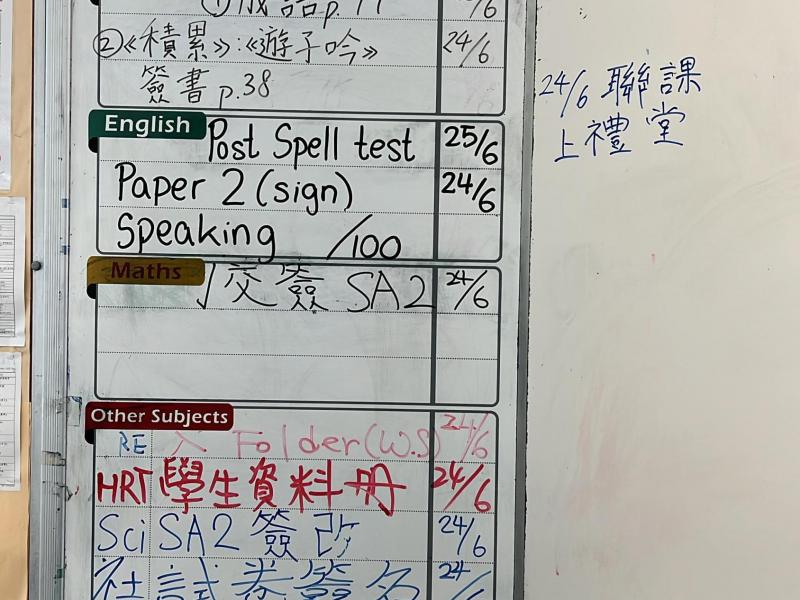 ①成語p.11
②《積累》:《遊子吟》 24/6
簽書 p.38
English
Post Spell test 25/6
Paper 2 (sign) 24/6
Speaking /100
Maths
√交簽 SA2 24/6
Other Subjects
RE 入 Folder(W.S) 24/6
HRT 學生資料冊 24/6
Sci SA2 簽改 24/6
社 試卷簽名 24/
24/6 聯課
上禮堂